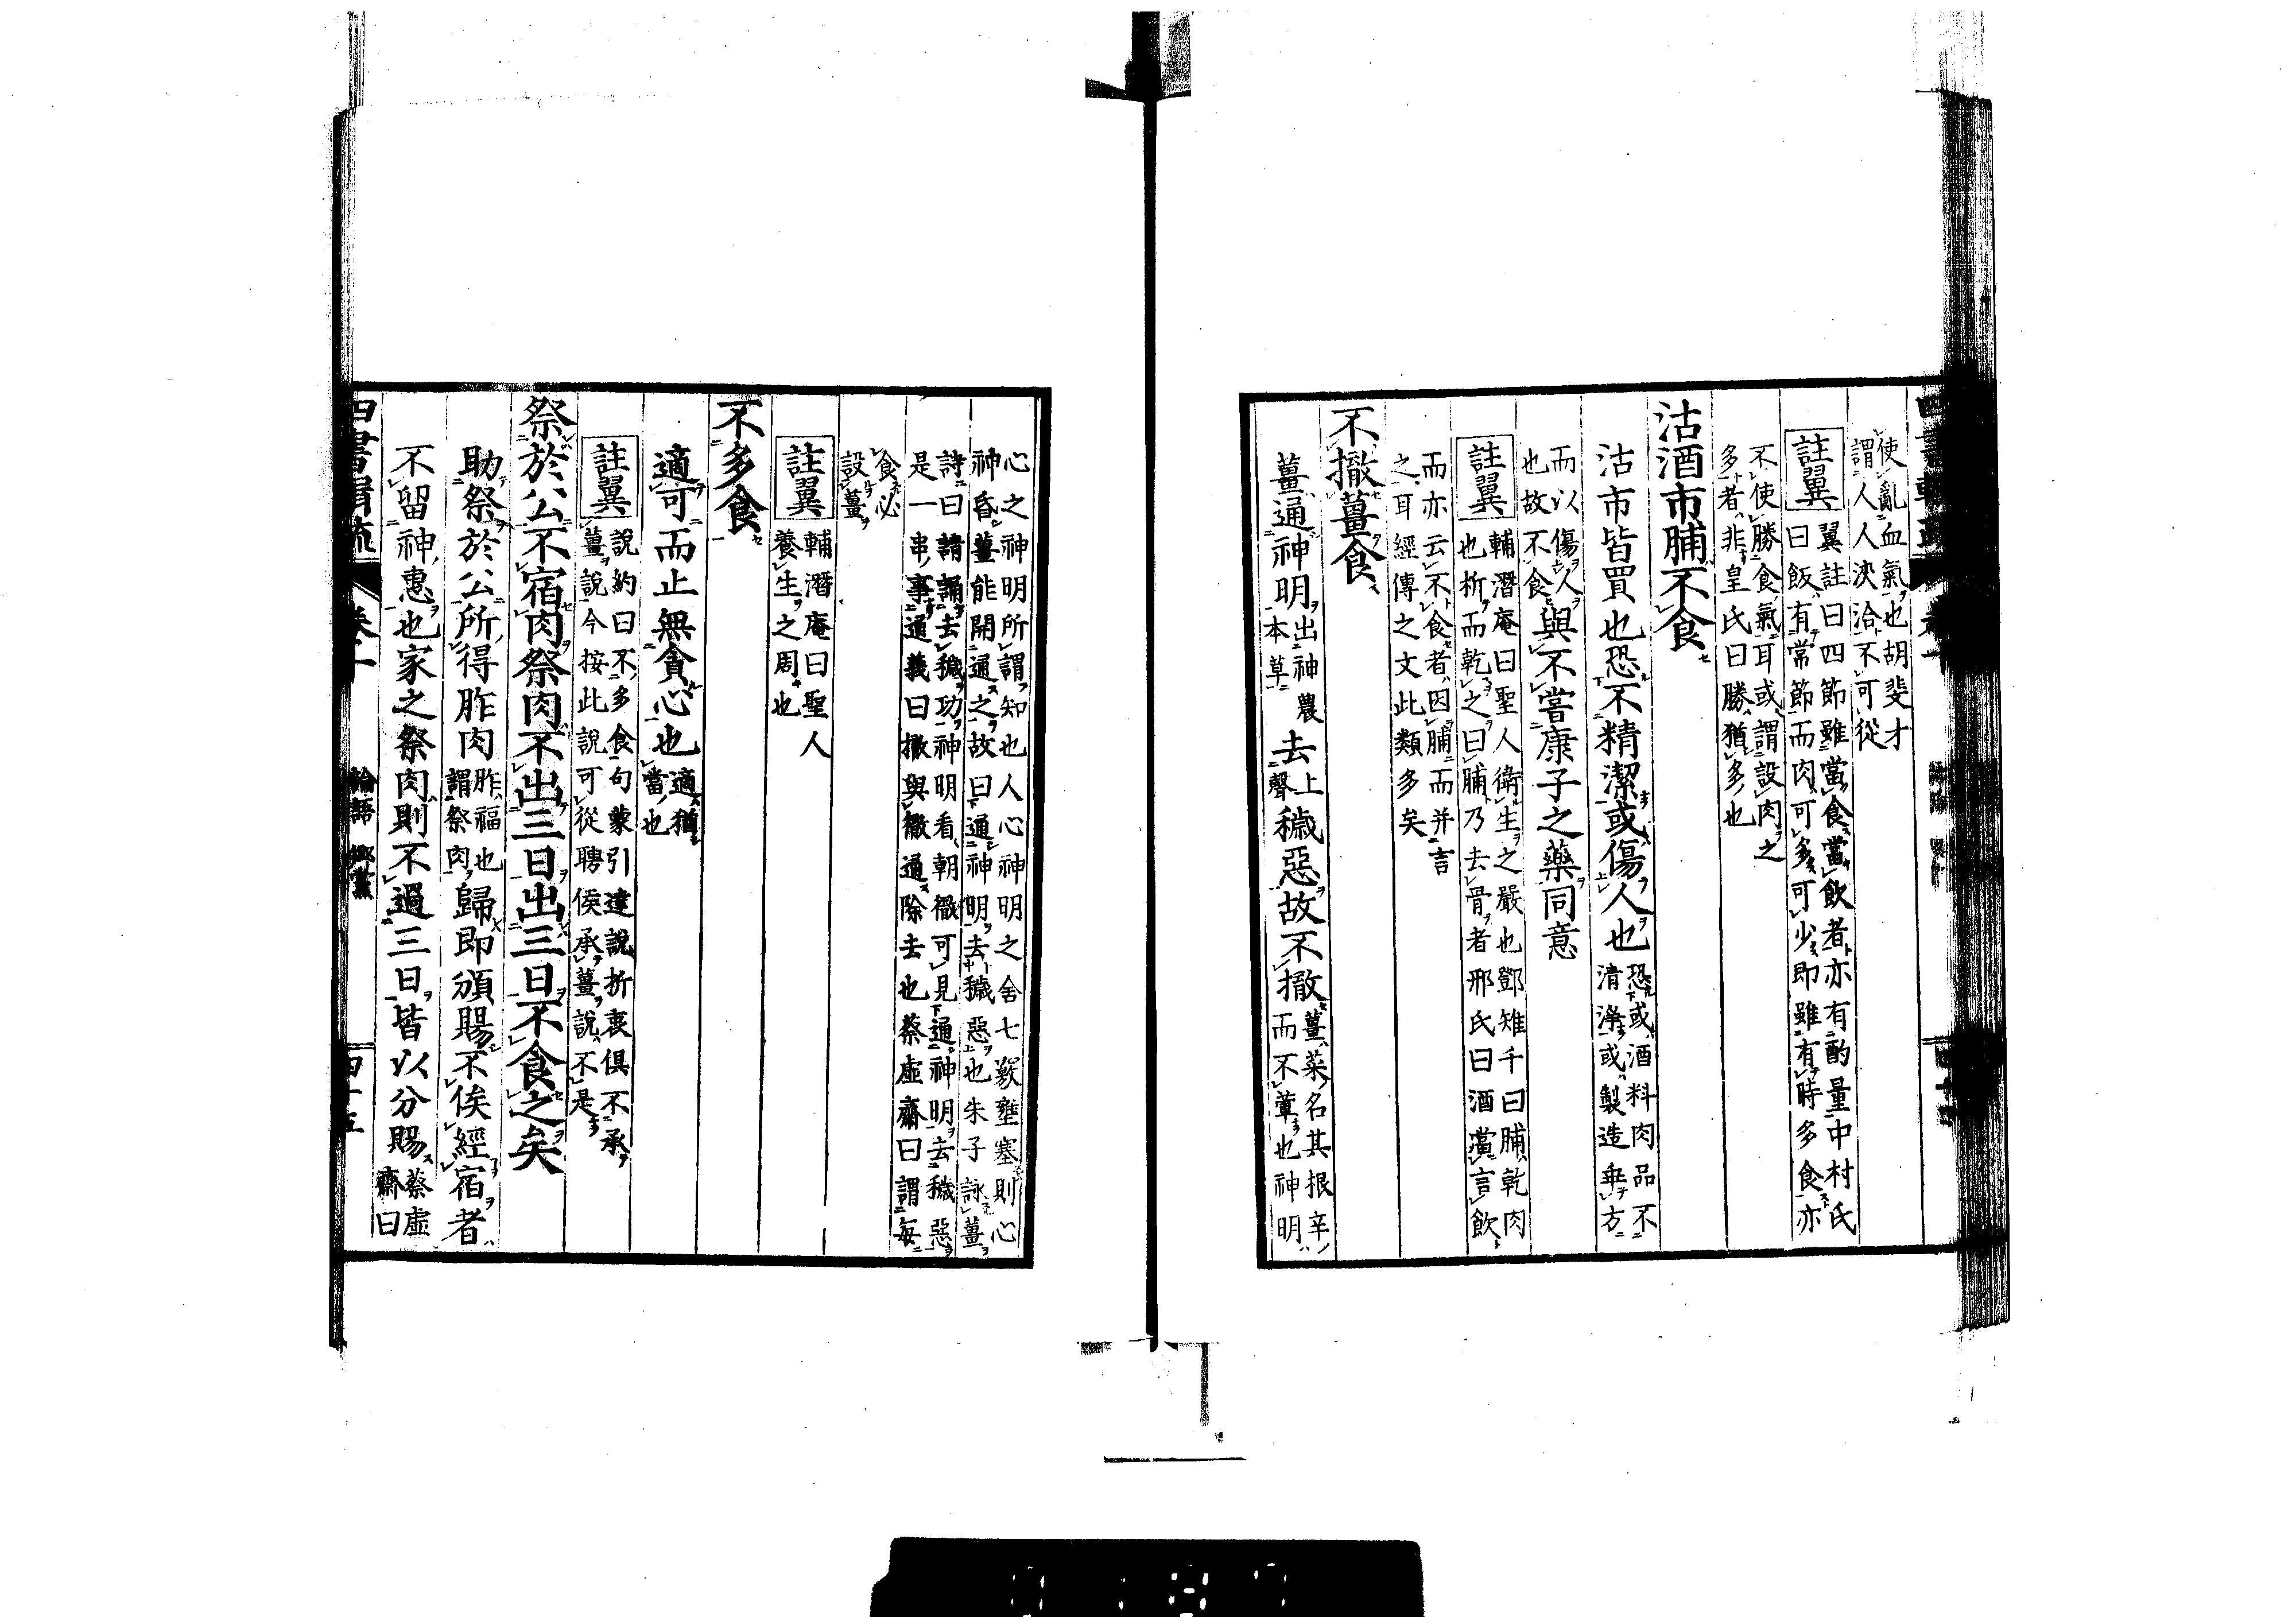 使亂血氣也胡斐才
謂人人浹洽不可從
註翼
翼註曰四節雖當食當飲者亦有酌量中村氏
曰飯有常節而肉可多可少即雖有時多食亦
不使勝食氣耳或謂設肉之
多者非皇氏曰勝猶多也
沽酒市脯不食
沽市皆買也恐不精潔或傷人也
恐或酒料肉品不
清淨或製造乖方
而以傷人
也故不食
與不嘗康子之藥同意
註翼
輔潛庵曰聖人衛生之嚴也鄧雉千曰脯乾肉
也析而乾之曰脯乃去骨者邢氏曰酒當言飲
而亦云不食者因脯而并言
之耳經傳之文此類多矣
不撤薑食
薑通神明
出神農
本草
去
上
聲
穢惡故不撤
薑菜名其根辛
而不葷也神明
心之神明所謂知也人心神明之舍七竅壅塞則心
神昏薑能開通之故曰通神明去穢惡也朱子詠薑
詩曰請誦去穢功神明看朝徹可見通神明去穢惡
是一串事通義曰撤與徹通除去也蔡虛齋曰謂每
食必
設薑
註翼
輔潛庵曰聖人
養生之周也
不多食
適可而止無貪心也
適猶
當也
註翼
說約曰不多食句蒙引達說折衷俱不承
薑說今按此說可從聘侯承薑說不是
祭於公不宿肉祭肉不出三日出三日不食之矣
助祭於公所得胙肉
胙福也
謂祭肉
歸即頒賜不俟經宿者
不留神惠也家之祭肉則不過三日皆以分賜
蔡虛
齋曰
四書輯疏
論語 鄉黨
四十五